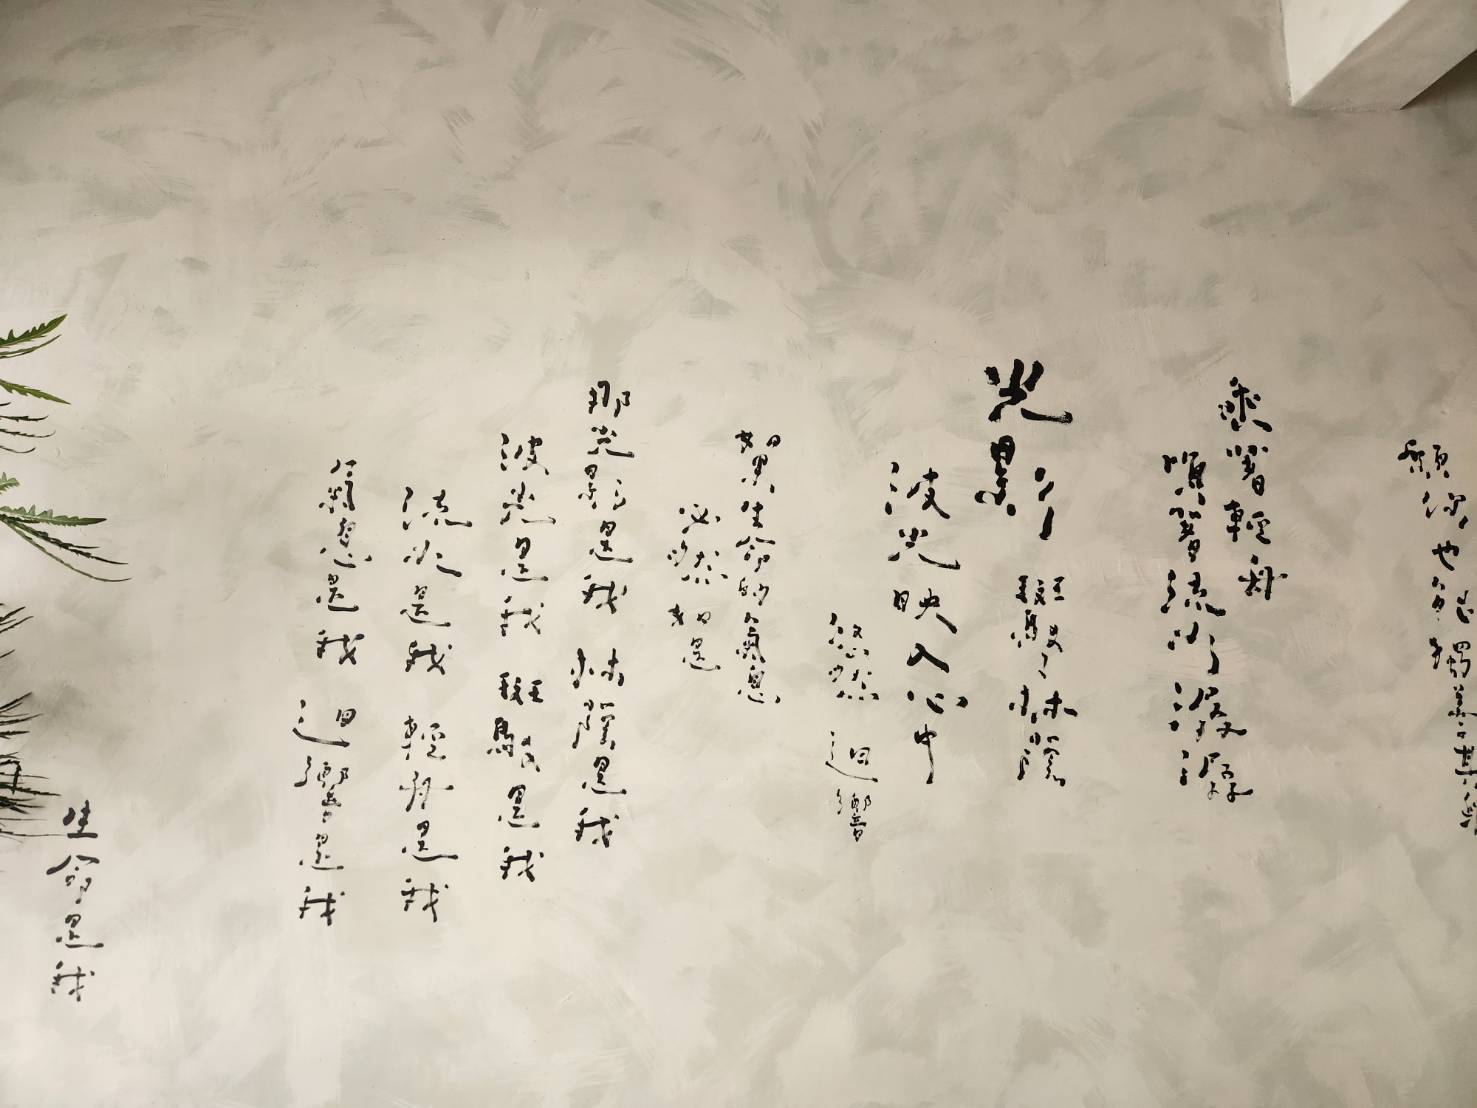 願你也能獨善其身
乘著輕舟
順著流水 潺潺
光影 斑駁了林蔭
波光映入心中
悠然 迴響
如果生命的氣息
必然如是
那光影是我 林蔭是我
波光是我 斑駁是我
流水是我 輕舟是我
氣息是我 迴響是我
生命是我